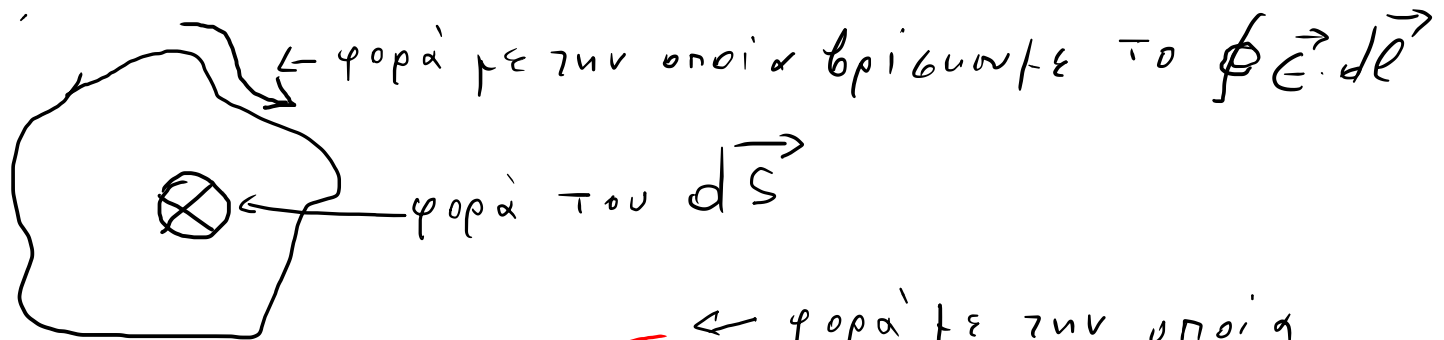 ← φορά με την οποία βρίσκουμε το ∮ E⃗·dl⃗
φορά του dS⃗
← φορά με την οποία